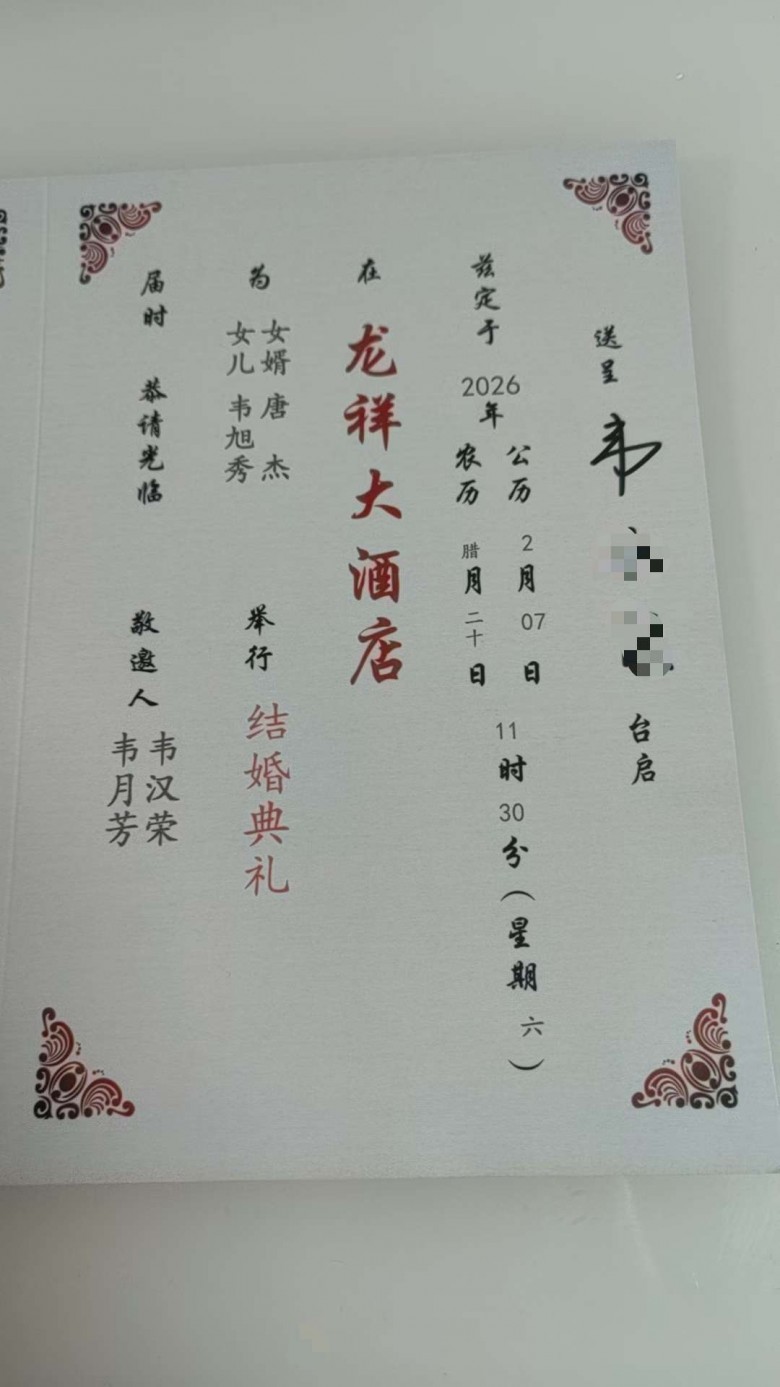 送呈 韦 台启
兹定于 2026年 公历 2月 07日 11时 30分（星期 六）
农历 腊月 二十日
在 龙祥大酒店
为 女婿 唐 杰
女儿 韦旭秀
举行 结婚典礼
届时 恭请光临
敬邀人 韦汉荣
韦月芳